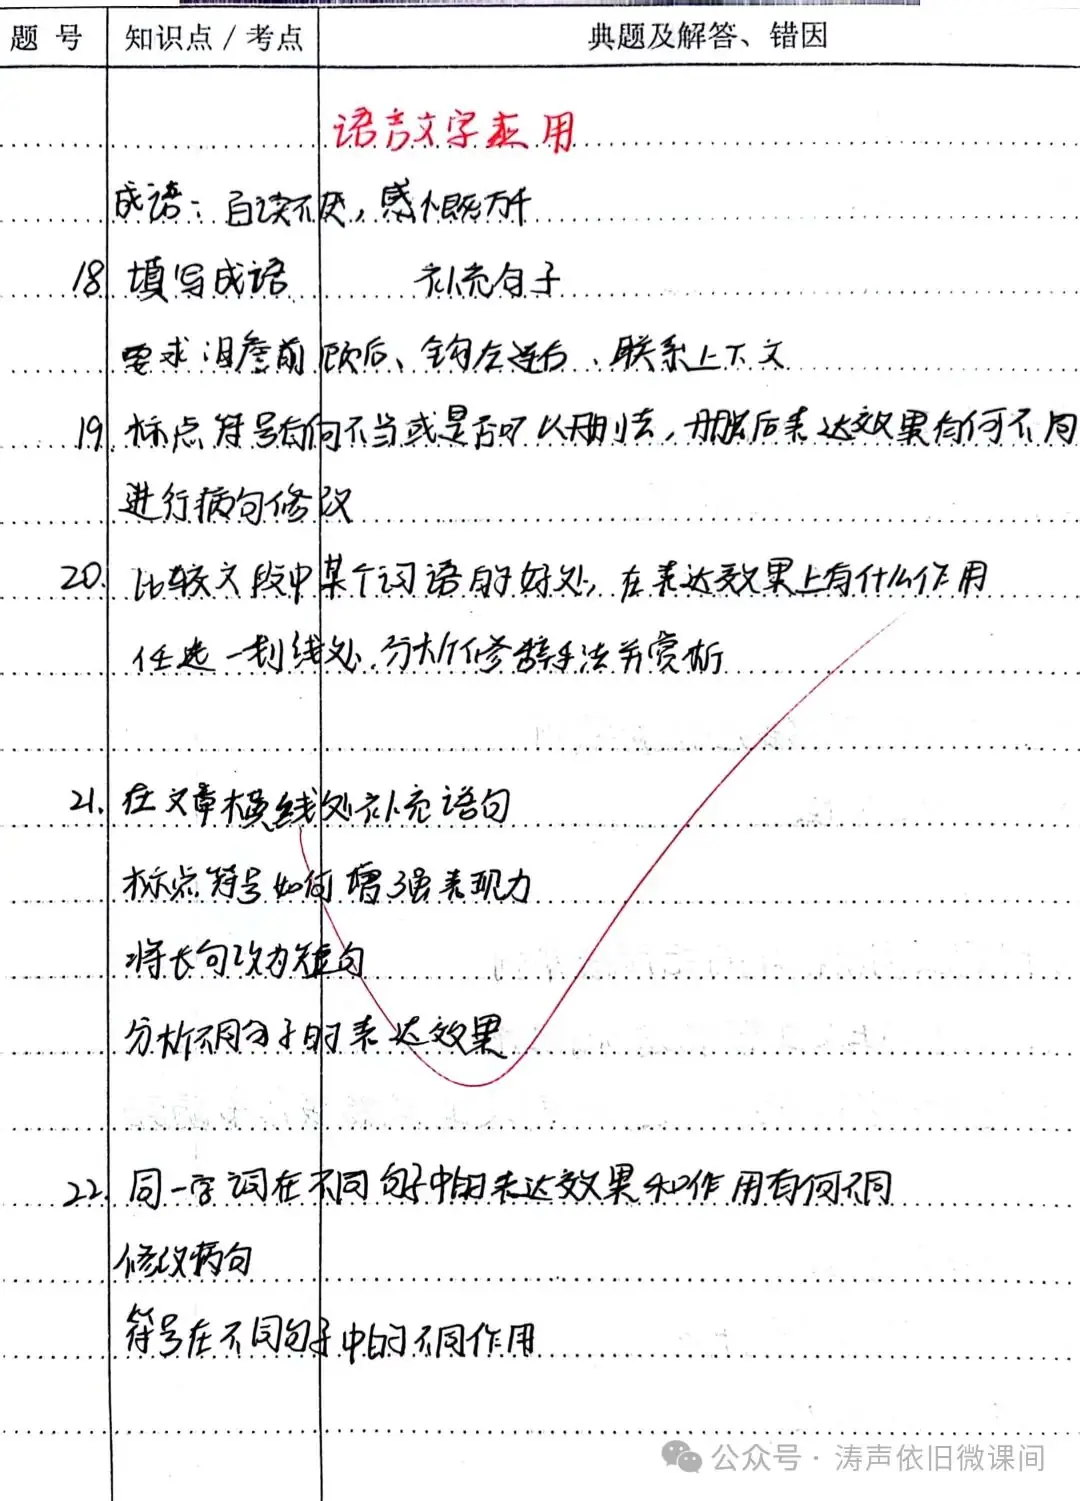 题 号 知识点 / 考点 典题及解答、错因
语言文字应用
成语：百读不厌，感慨万千
18 填写成语 补充句子
要求 瞻前顾后、钩左连右、联系上下文
19. 标点符号有何不当或是否可以删去，删除后表达效果有何不同
进行病句修改
20. 比较文段中某个词语的好处，在表达效果上有什么作用
任选一划线处，分析修辞手法并赏析
21. 在文章横线处补充语句
标点符号如何增强表现力
将长句改为短句
分析不同句子的表达效果
22. 同一字词在不同句子中的表达效果和作用有何不同
修改病句
符号在不同句子中的不同作用
公众号 · 涛声依旧微课间